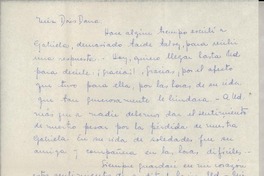 Miss Doris Dana
Hace algún tiempo escribí a
Gabriela, demasiado tarde talvez, para recibir
una respuesta. - Hoy, quiero llegar hasta Ud
para decirle: ¡gracias!, gracias, por el afecto
que tuvo para ella, por las horas de su vida
que tan generosamente le brindara. - A Ud.
más que a nadie debemos dar el sentimiento
de nuestro pesar por la pérdida de nuestra
Gabriela. En su vida de soledades fué su
amiga y compañera en las horas difíciles. -
Siempre guardaré en mi corazón
este sentimiento de